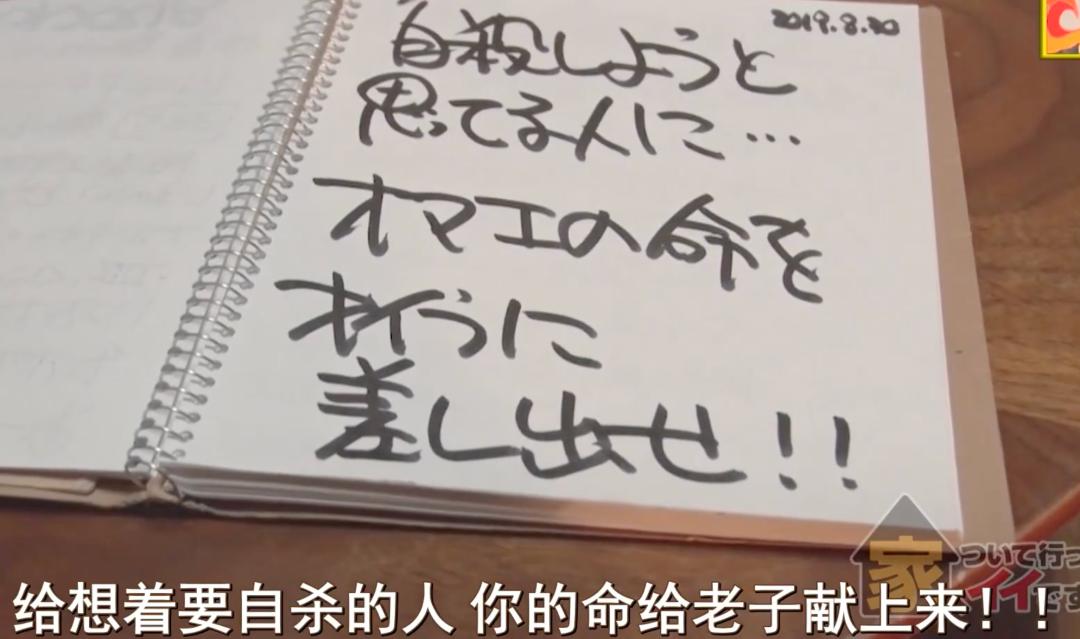 2019.8.30
自殺しようと
思ってる人に…
オマエの命を
オイラに
差し出せ!!
家ついて行ってイイですか
给想着要自杀的人 你的命给老子献上来！！